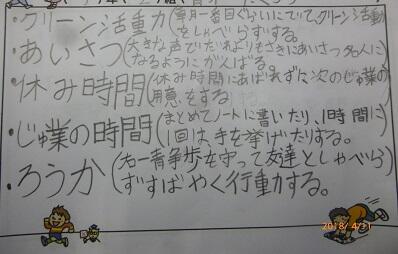 ・クリーン活動(毎月一番目ぐらいにでて、クリーン活動
をしゃべらずする。
・あいさつ(大きな声でだれよりもさきにあいさつ名人に
なるようにがんばる。
・休み時間(休み時間にあばれずに次のじゅ業の
用意をする
・じゅ業の時間(まとめてノートに書いたり、1時間に
1回は、手を挙げたりする。
・ろうか(右一青争歩を守って友達としゃべら
ずすばやく行動力する。
2018/4/31